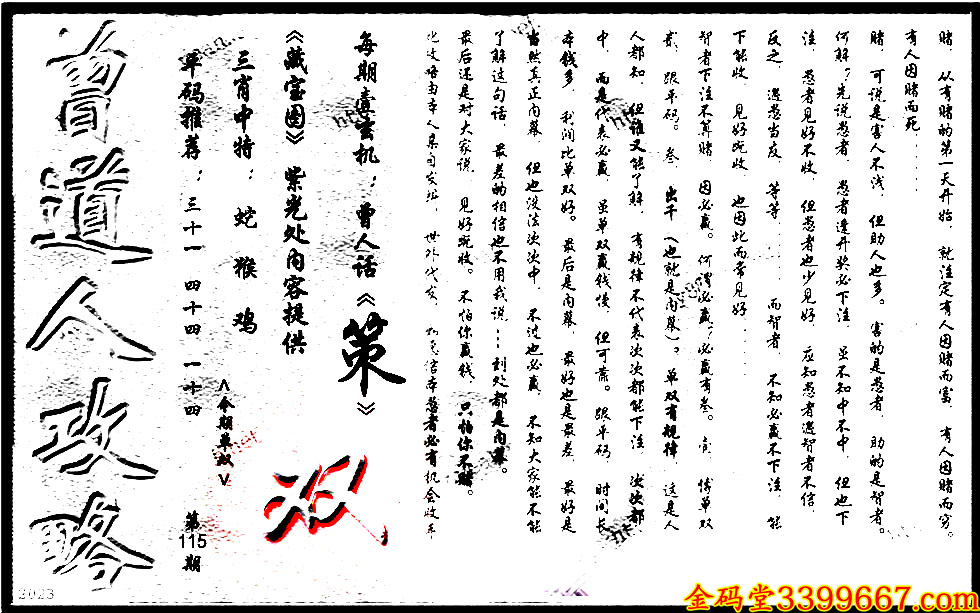 赌、从有赌的第一天开始、就注定有人因赌而富、有人因赌而穷。
有人因赌而死......
赌、可说是害人不浅、但助人也多。害的是愚者、助的是智者。
何解？先说愚者、愚者逢开奖必下注、虽不知中不中、但也下
注、愚者见好不收、但愚者也少见好、应知愚者遇智者不信、
反之、遇愚当度、等等......而智者、不知必赢不下注、能
下能收、见好就收、也因此而常见好......
智者下注不算赌、因必赢。何谓必赢？必赢有叁。壹、博单双
贰、跟单码。叁、出千（也就是内幕）。单双有规律、这是人
人都知、但谁又能了解、有规律不代表次次都能下注、次次都
中、而是代表必赢、虽单双赢钱慢、但可靠。跟单码、时间长
本钱多、利润比单双好。最后是内幕、最好也是最差、最好是
当然真正内幕、但也没法次次中、不过也必赢、不知大家能不能
了解这句话、最差的相信也不用我说...到处都是内幕。
最后还是对大家说、见好就收。不怕你赢钱、只怕你不赌。
每期毒玄机：曾人话《策》
《藏宝图》紫光处内容提供
三肖中特：蛇 猴 鸡
单码推荐：三十一 四十四 一十四
<今期单双>
双
第115期
曾道人攻略
2023
金码堂3399667.com